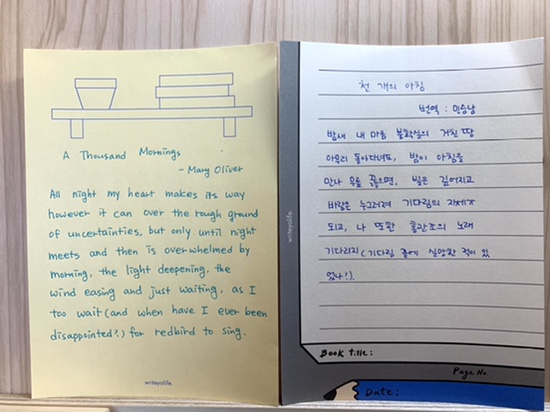 A Thousand Mornings
- Mary Oliver
All night my heart makes its way
however it can over the rough ground
of uncertainties, but only until night
meets and then is overwhelmed by
morning, the light deepening, the
wind easing and just waiting, as I
too wait (and when have I ever been
disappointed?) for redbird to sing.
writeyolife
천 개의 아침
번역 : 민승남
밤새 내 마음 불확실의 거친 땅
아무리 돌아다녀도, 밤이 아침을
만나 무릎 꿇으면, 빛은 깊어지고
바람은 누그러져 기다림의 자세가
되고, 나 또한 홍관조의 노래
기다리지 (기다림 끝에 실망한 적이 있
었나?).
writeyolife
Book title:
Page No.
Date: